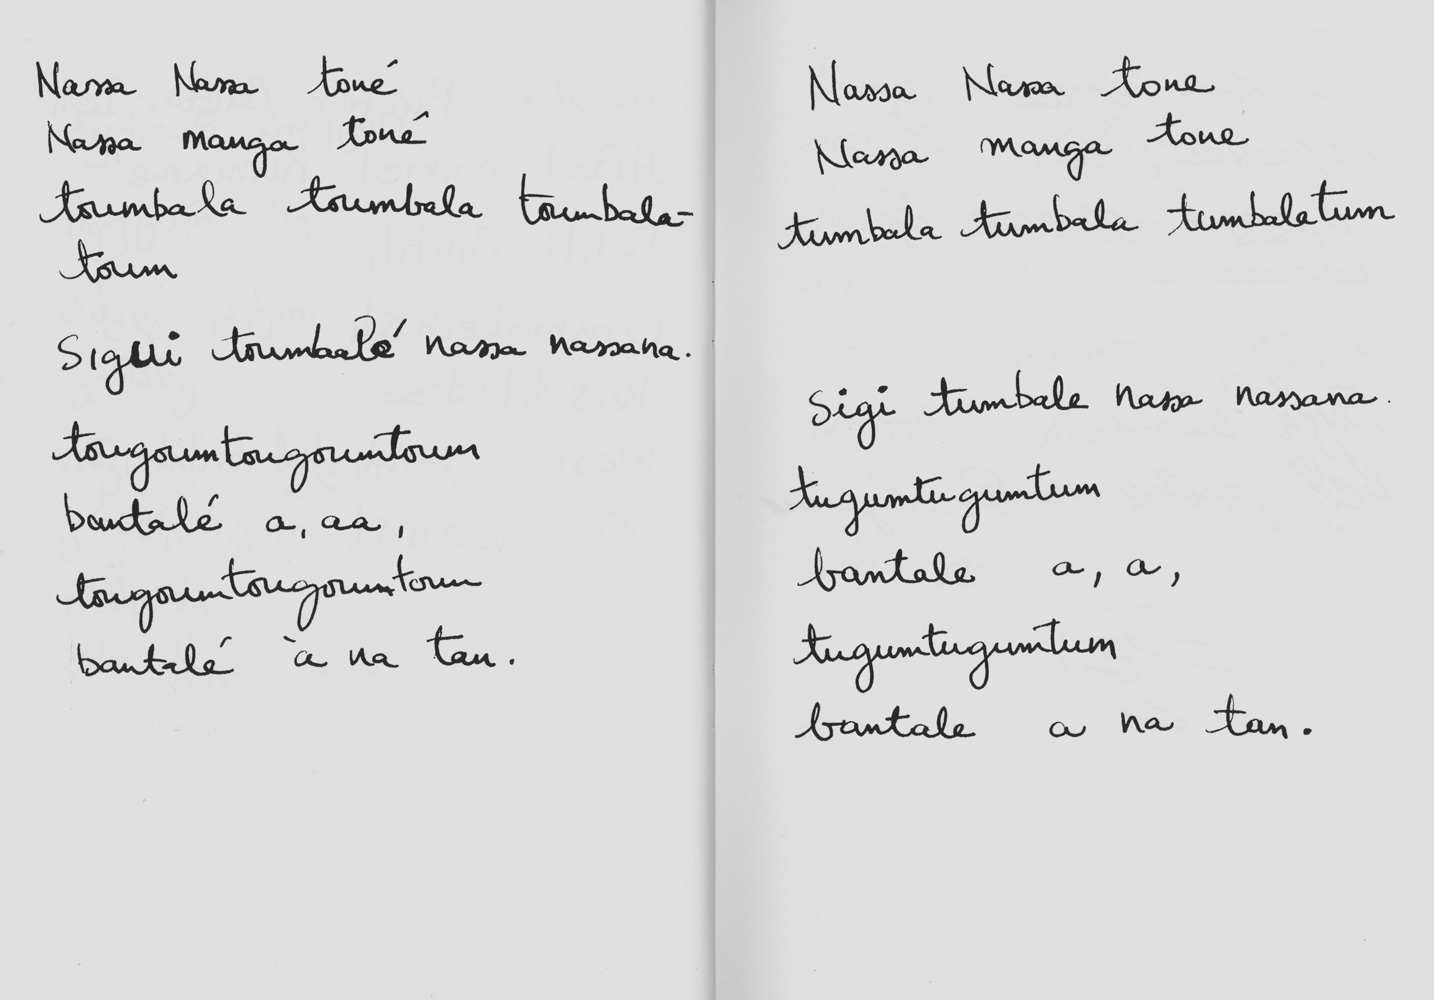 Nassa Nassa toné
Nassa manga toné
toumbala toumbala toumbala-
toum
Sigui toumbalé nassa nassana.
tougoumtougoumtoum
bantalé a, aa,
tougoumtougoumtoum
bantalé à na tan.
Nassa Nassa tone
Nassa manga tone
tumbala tumbala tumbalatum
Sigi tumbale nassa nassana.
tugumtugumtum
bantale a, a,
tugumtugumtum
bantale a na tan.